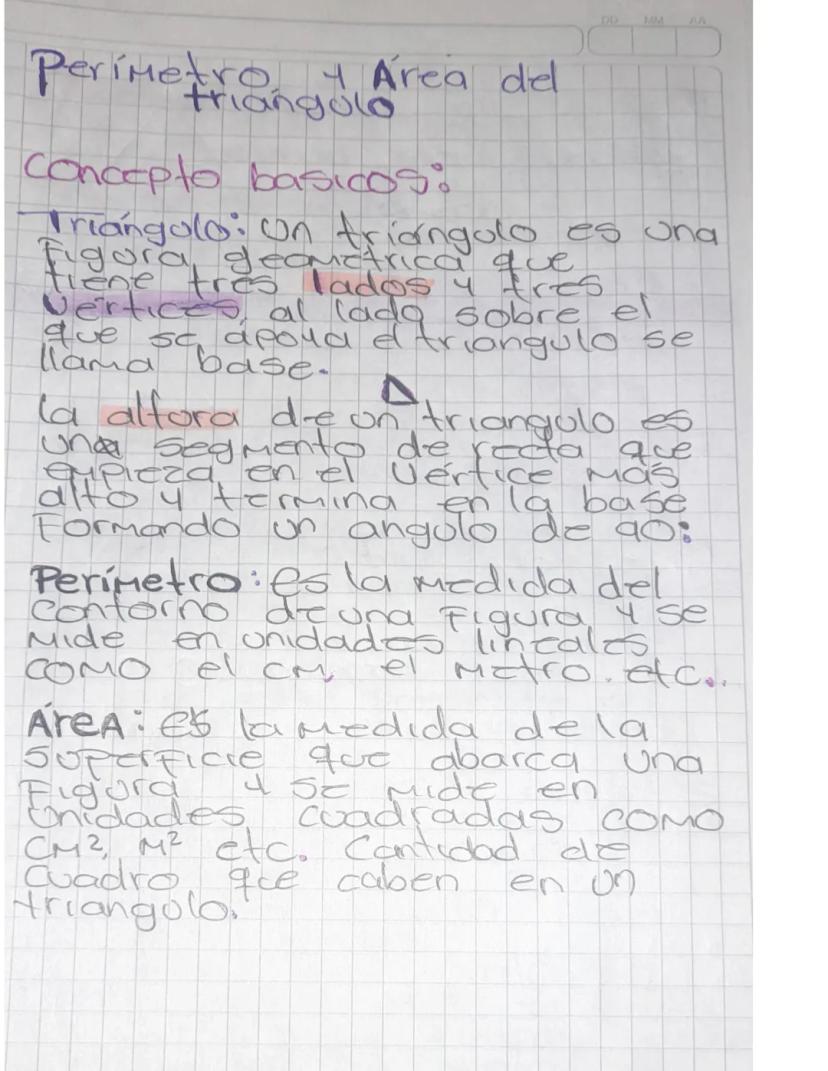 DD MM AA
Perímetro y Área del
triángulo
Concepto basicos:
Triángulo: Un triángulo es una
Figura geométrica que
tiene tres lados y tres
Vértices, al lado sobre el
que se apoya el triangulo se
llama base.
La altura de un triangulo es
una segmento de recta que
empieza en el vértice más
alto y termina en la base
Formando un angulo de 90:
Perímetro: es la medida del
contorno de una Figura y se
Mide en unidades lineales
como el cm, el metro. etc..
Área: es la medida de la
superficie que abarca una
Figura y se mide en
Unidades cuadradas como
cm², m² etc. Cantidad de
cuadro que caben en un
triangulo.